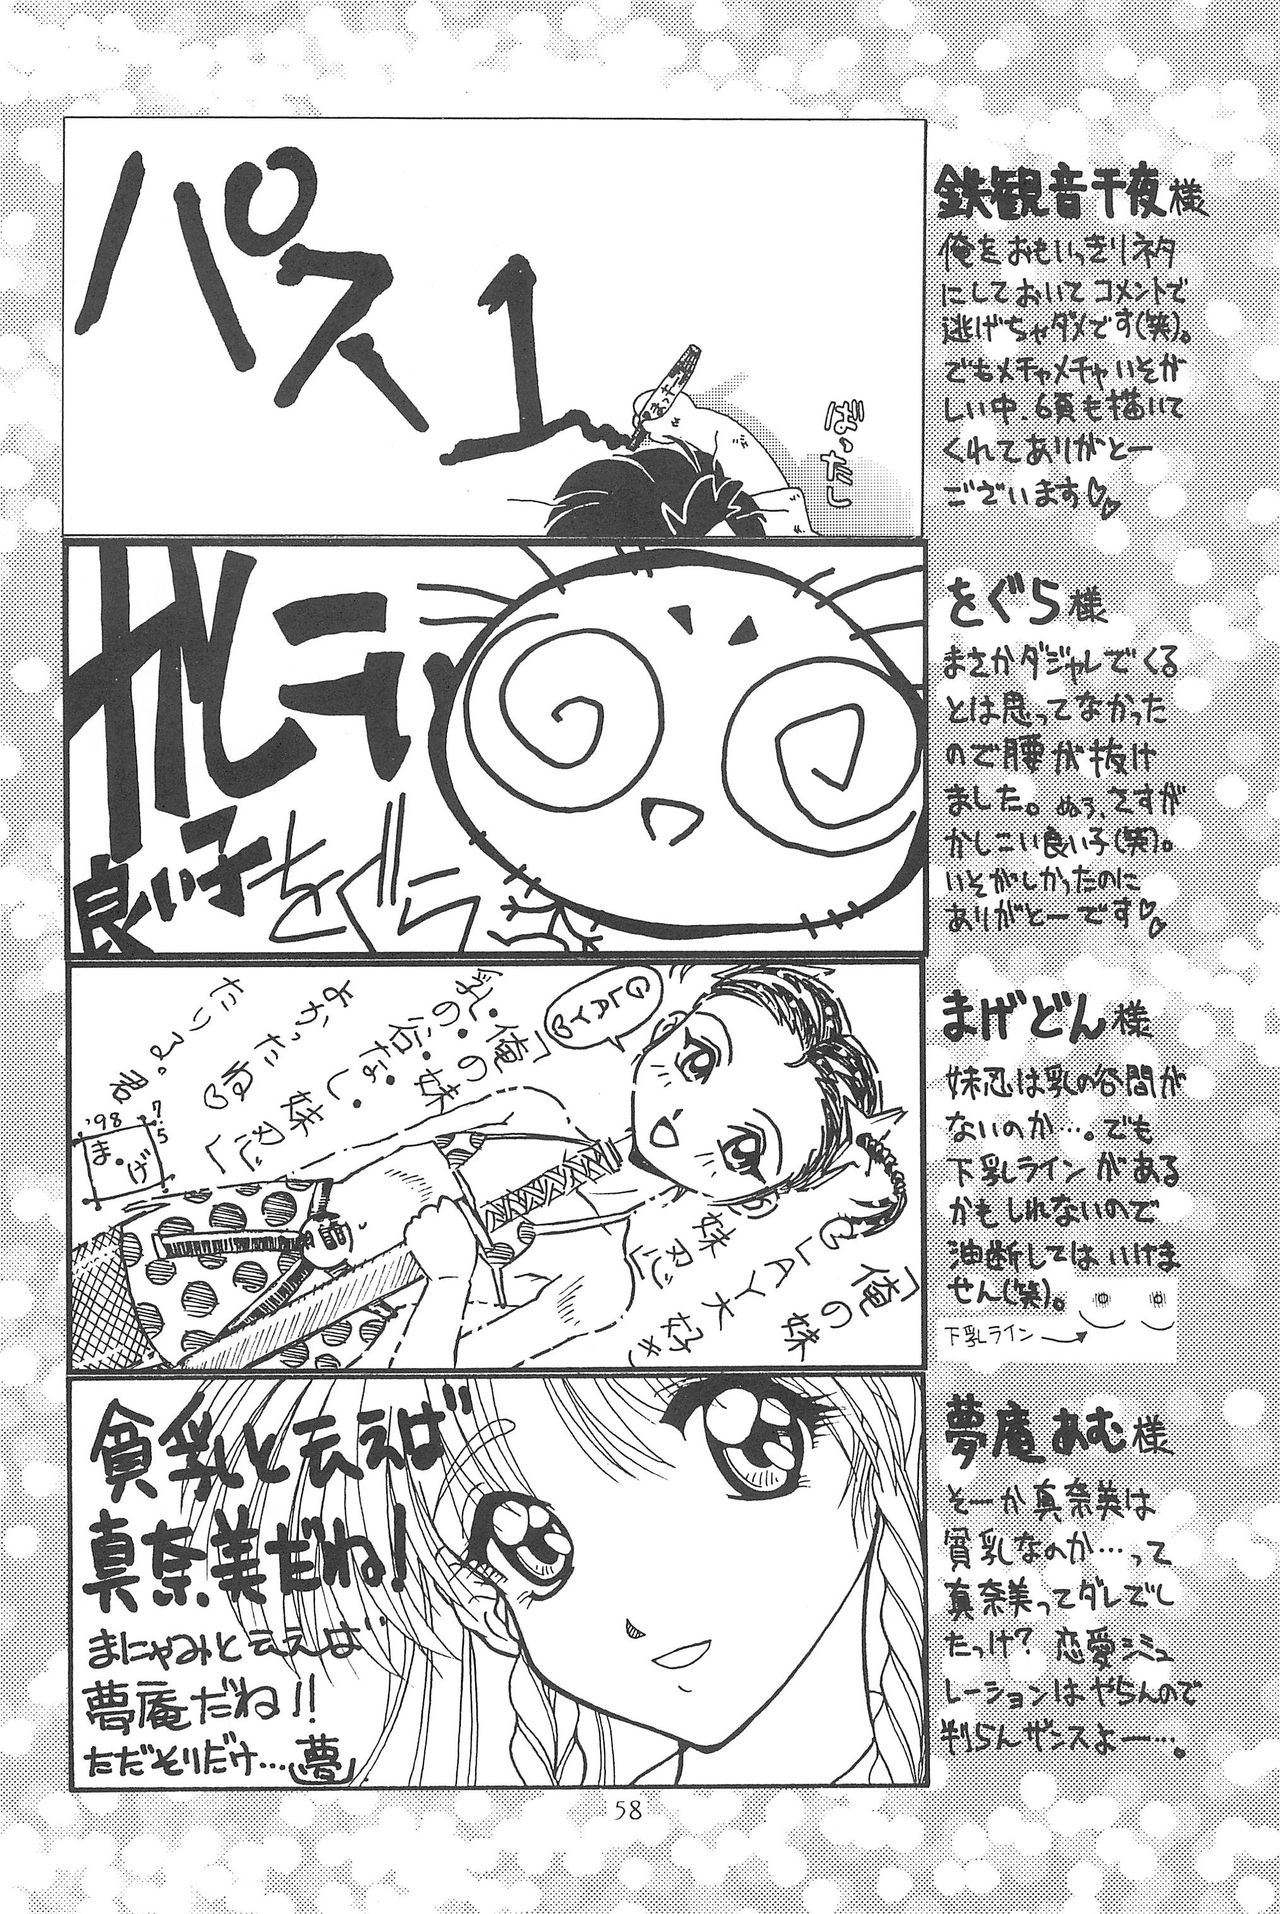 パス1
ばったし
鉄観音千夜様
俺をおもいっきりネタ
にしておいてコメントで
逃げちゃダメです(笑)。
でもメチャメチャいそが
しい中、6頁も描いて
くれてありがとー
ございます♡♡
良い子をぐら
をぐら様
まさかダジャレでくる
とは思ってなかった
ので腰が抜け
ました。ぬう、さすが
かしこい良い子(笑)。
いそがしかったのに
ありがとーです♡♡
GLAY♡
「俺の妹
乳・俺の妹
乳の谷なし・妹忍」
よかったね♡
たつる。君
'98 7.5
ま.げ
「俺の妹
GLAY大好き
妹忍」
まげどん様
妹忍は乳の谷間が
ないのか…。でも
下乳ラインがある
かもしれないので
油断してはいけま
せん(笑)。
下乳ライン→
貧乳と云えば
真奈美だね!
まにゃみと云えば
夢庵だね!!
ただそりだけ…夢
夢庵あむ様
そーか真奈美は
貧乳なのか…って
真奈美ってダレでし
たっけ?恋愛シミュ
レーションはやらんので
判らんザンスよー…。
58